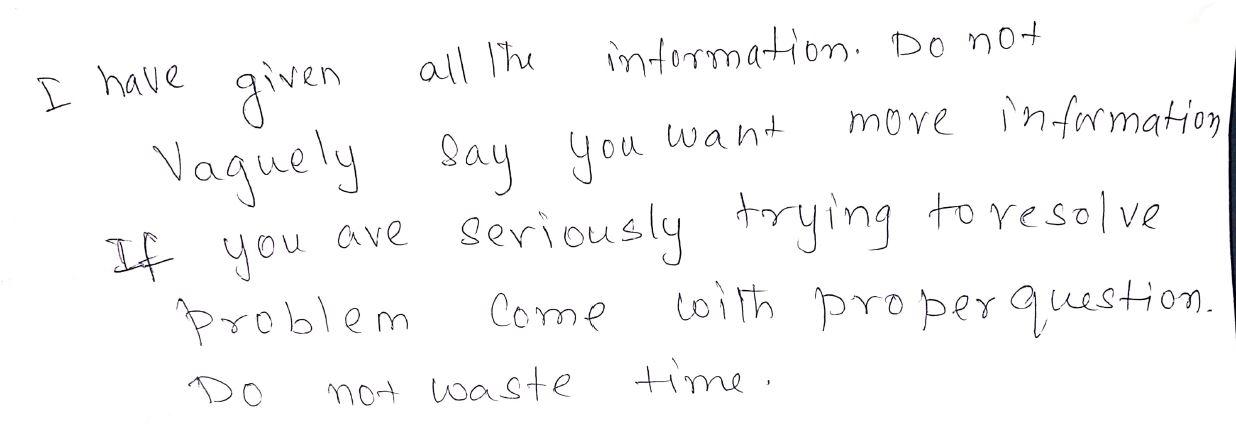 I have given all the information. Do not
Vaguely say you want more information
If you are seriously trying to resolve
problem come with proper question.
Do not waste time.